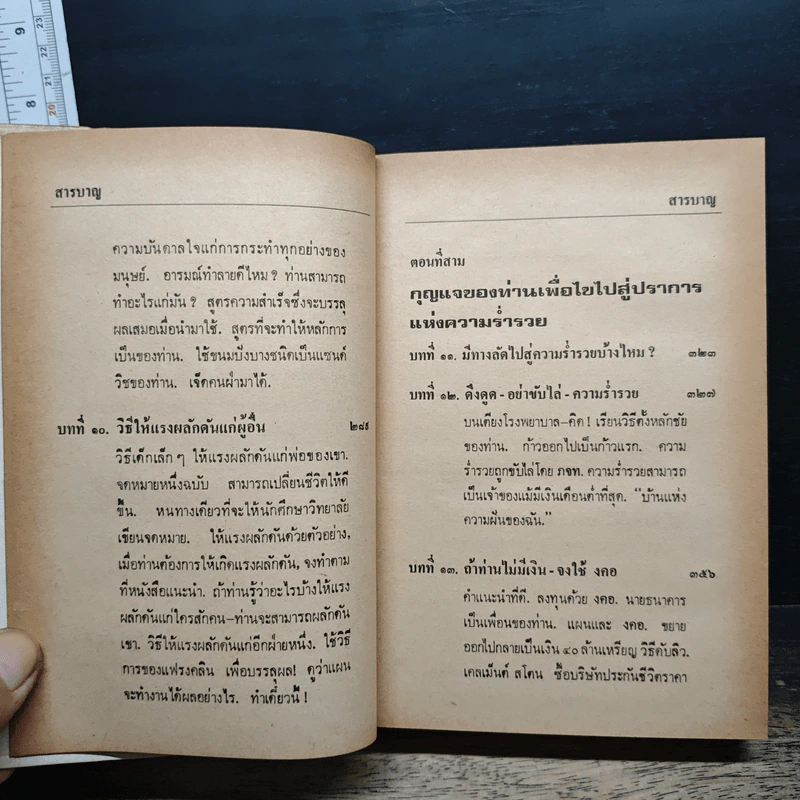 สารบาญ
ความบันดาลใจแก่การกระทำทุกอย่างของ
มนุษย์. อารมณ์ทำลายดีไหม? ท่านสามารถ
ทำอะไรแก่มัน? สูตรความสำเร็จซึ่งจะบรรลุ
ผลเสมอเมื่อนำมาใช้. สูตรที่จะทำให้หลักการ
เป็นของท่าน. ใช้ขนมปังบางชนิดเป็นแซนด์
วิชของท่าน. เจ็ดคนผ่ำมาได้.
บทที่ ๑๐. วิธีให้แรงผลักดันแก่ผู้อื่น ๒๘๙
วิธีเด็กเล็กๆ ให้แรงผลักดันแก่พ่อของเขา.
จดหมายหนึ่งฉบับ สามารถเปลี่ยนชีวิตให้ดี
ขึ้น. หนทางเดียวที่จะให้นักศึกษาวิทยาลัย
เขียนจดหมาย. ให้แรงผลักดันด้วยตัวอย่าง,
เมื่อท่านต้องการให้เกิดแรงผลักดัน, จงทำตาม
ที่หนังสือแนะนำ. ถ้าท่านรู้ว่าอะไรบ้างให้แรง
ผลักดันแก่ใครสักคน–ท่านจะสามารถผลักดัน
เขา. วิธีให้แรงผลักดันแก่อีกฝ่ายหนึ่ง. ใช้วิธี
การของแฟรงคลิน เพื่อบรรลุผล! ดูว่าแผน
จะทำงานได้ผลอย่างไร. ทำเดี๋ยวนี้!
สารบาญ
ตอนที่สาม
กุญแจของท่านเพื่อไขไปสู่ปราการ
แห่งความร่ำรวย
บทที่ ๑๑. มีทางลัดไปสู่ความร่ำรวยบ้างไหม? ๓๒๓
บทที่ ๑๒. ดึงดูด - อย่าขับไล่ - ความร่ำรวย ๓๒๗
บนเตียงโรงพยาบาล–คิด! เรียนวิธีตั้งหลักชัย
ของท่าน. ก้าวออกไปเป็นก้าวแรก. ความ
ร่ำรวยถูกขับไล่โดย ภจท. ความร่ำรวยสามารถ
เป็นเจ้าของแม้มีเงินเดือนต่ำที่สุด. “บ้านแห่ง
ความฝันของฉัน.”
บทที่ ๑๓. ถ้าท่านไม่มีเงิน - จงใช้ งคอ ๓๕๖
คำแนะนำที่ดี. ลงทุนด้วย งคอ. นายธนาคาร
เป็นเพื่อนของท่าน. แผนและ งคอ. ขยาย
ออกไปกลายเป็นเงิน ๔๐ ล้านเหรียญ วิธีดับลิว.
เคลเม็นต์ สโตน ซื้อบริษัทประกันชีวิตราคา
9
8
23
22
21
20